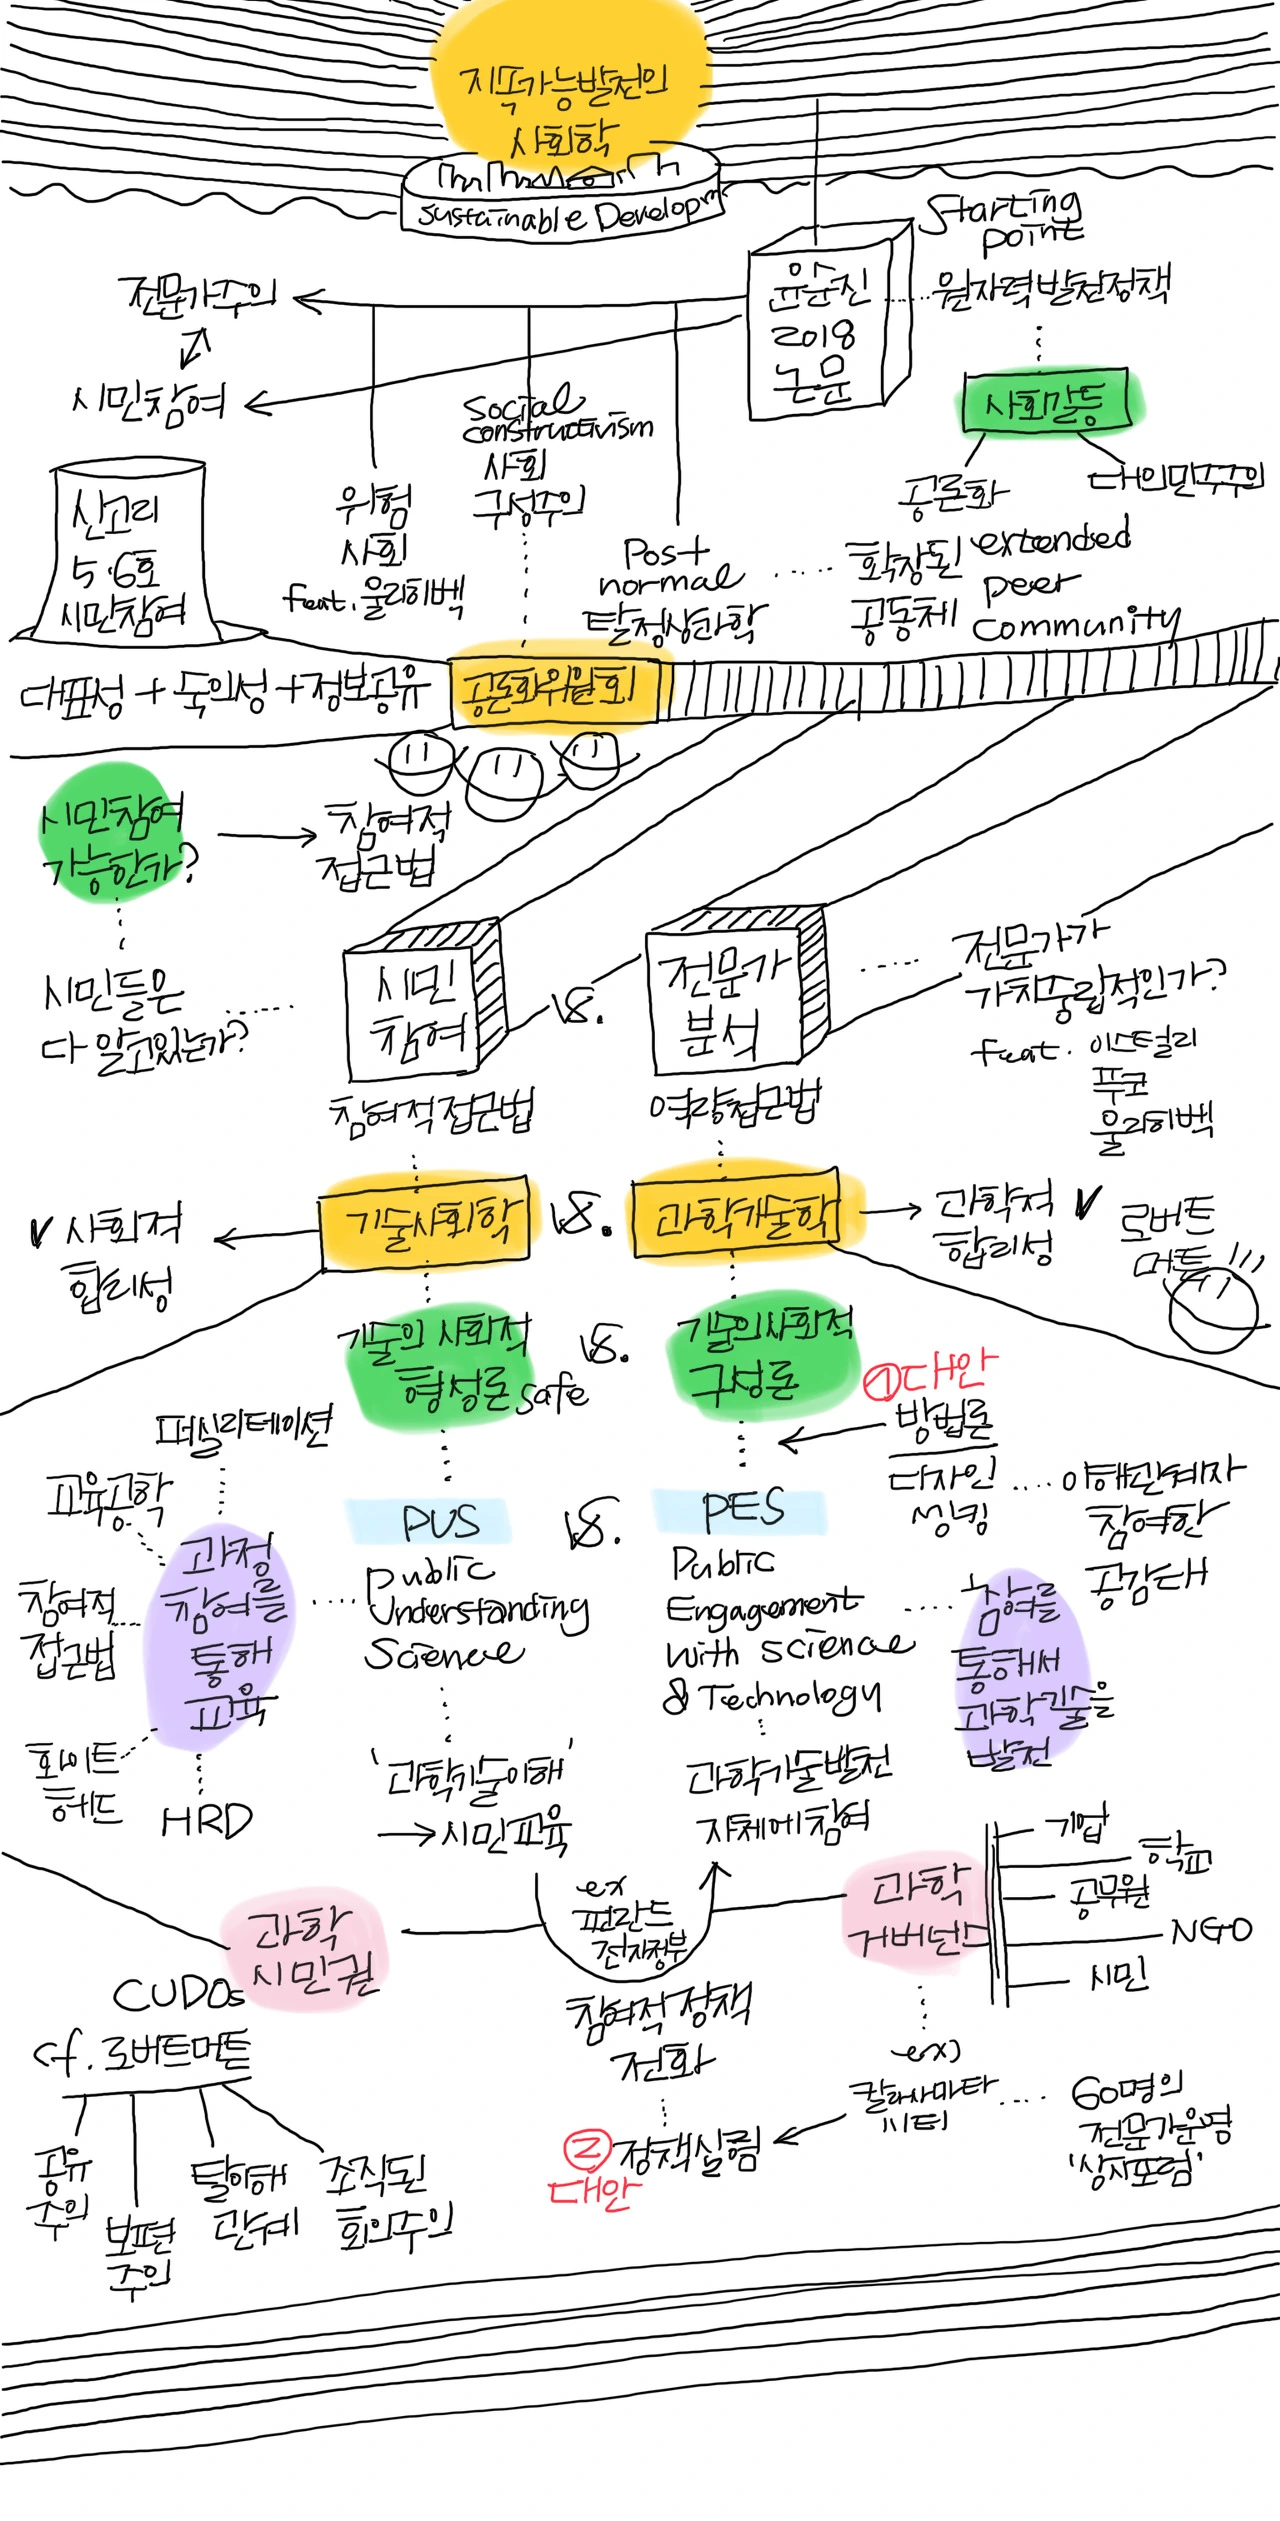 지속가능발전의
사회학
Sustainable Developm
Starting
point
윤순진
2018
논문
원자력발전정책
사회갈등
공론화
대의민주주의
전문가주의
시민참여
위험
사회
feat. 울리히벡
Social
constructivism
사회
구성주의
Post
normal
탈정상과학
확장된
공동체
extended
peer
community
신고리
5·6호
시민참여
대표성 + 숙의성 + 정보공유
공론화위원회
시민참여
가능한가?
참여적
접근법
시민들은
다 알고있는가?
시민
참여
vs.
전문가
분석
전문가가
가치중립적인가?
feat. 이스털리
푸코
울리히벡
참여적접근법
역량접근법
✓ 사회적
합리성
기술사회학
vs.
과학기술학
과학적 ✓
합리성
로버트
머튼 !!!
기술의 사회적
형성론
safe
vs.
기술의사회적
구성론
①대안
방법론
디자인
씽킹
이해관계자
참여한
공감대
퍼실리테이션
교육공학
참여적
접근법
화이트
헤드
HRD
과정
참여를
통해
교육
PUS
Public
Understanding
Science
'과학기술이해'
→시민교육
vs.
PES
Public
Engagement
with science
& Technology
과학기술발전
자체에참여
참여를
통해서
과학기술을
발전
과학
시민권
ex
핀란드
전자정부
과학
거버넌스
기업
학교
공무원
NGO
시민
CUDOs
cf. 로버트머튼
공유
주의
보편
주의
탈이해
관계
조직된
회의주의
참여적 정책
전화
② 정책실험
대안
ex)
칼라사마타
시티
60명의
전문가운영
'상자포럼'